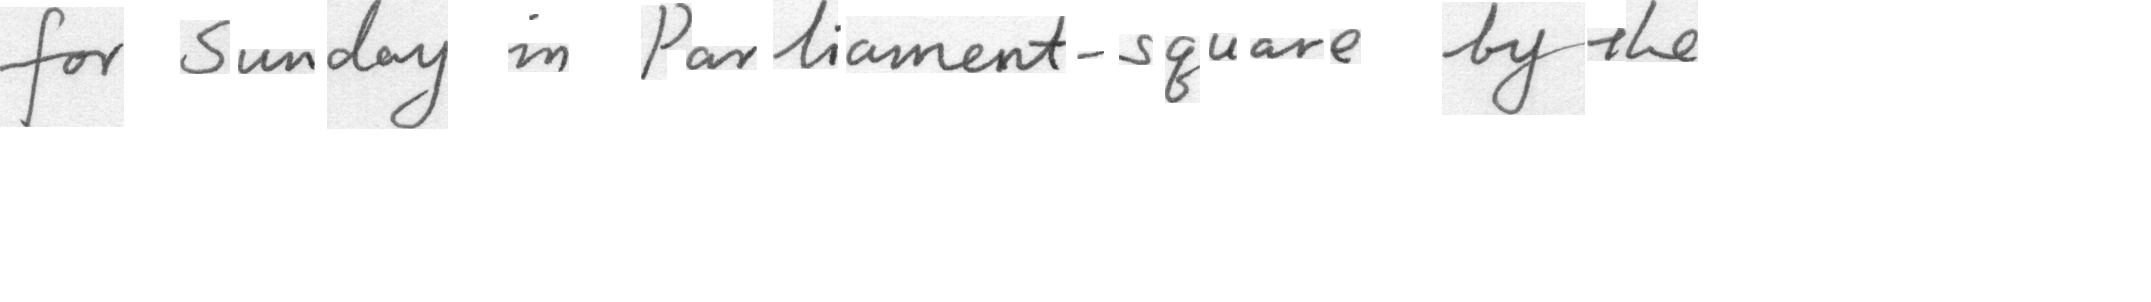 for Sunday in Parliament-square by the